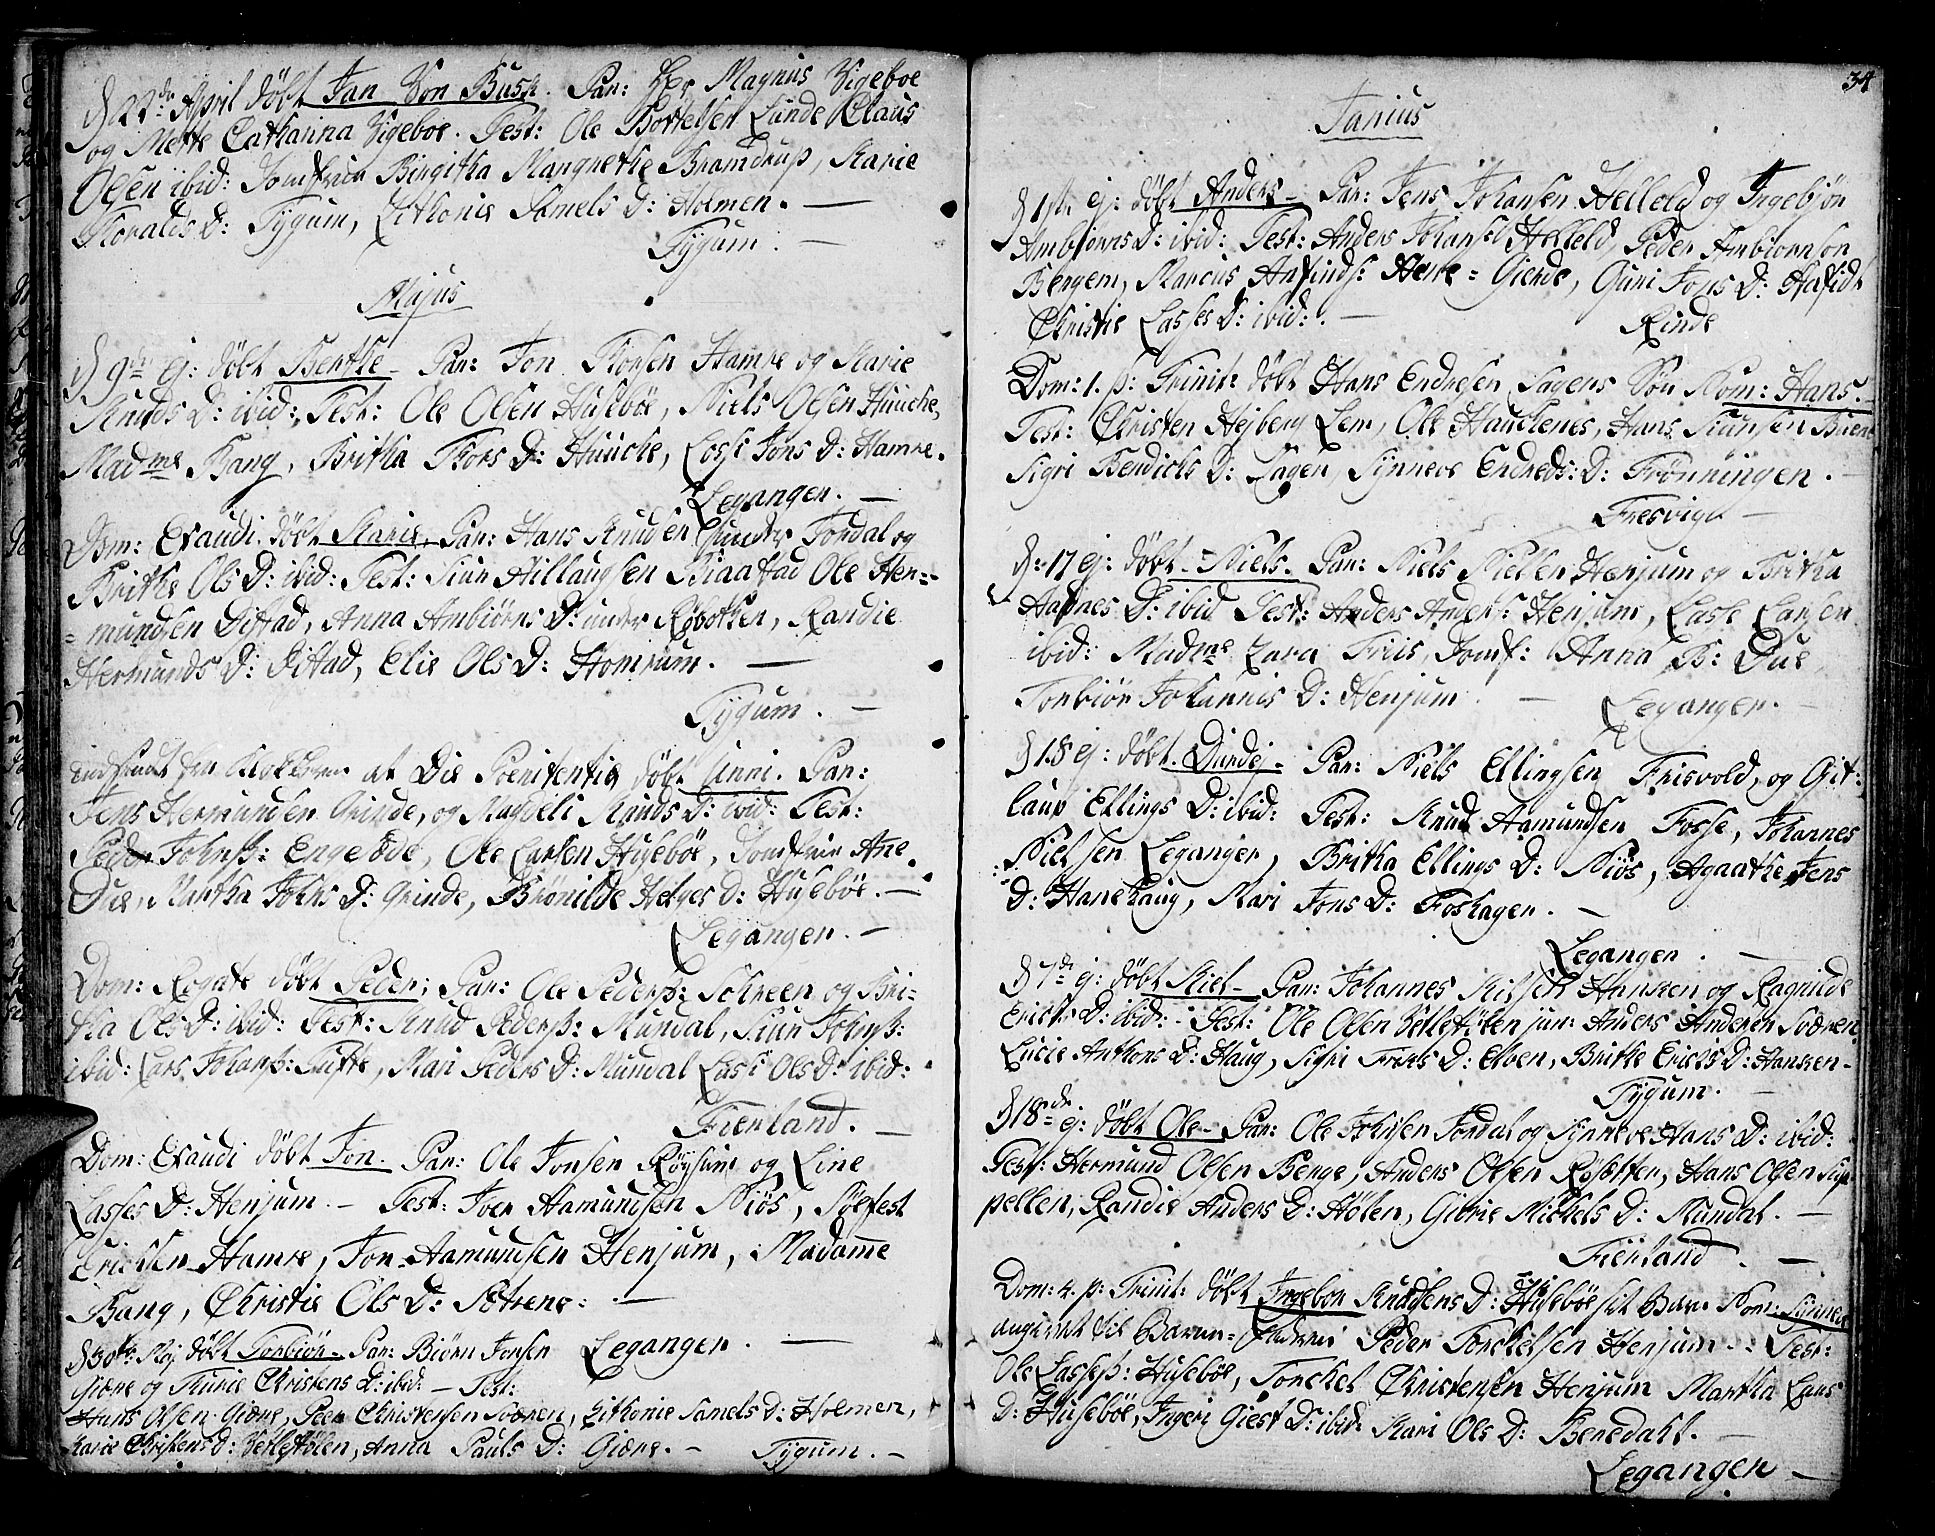 d 22de April döbt Jan Von Busk. Par: Hr Magnus Zigeboe
og Mette Catharina Zigeboe. Test: Ole Bottelsen Lunde Claus
Olsen ibid: Jomfrue Birgitha Mangrethe Bramdrup, Karie
Thoralds D: Tygum, Zithonie Samels D: Holmen. —
Tygum. —
Majus
d 9de ej: döbt Benthe – Par: Jon Thorsen Hamre og Marie
Knuds D: ibid: Test: Ole Olsen Huseböe, Niels Olsen Huuche,
Madme Bang, Britha Thors D: Huuche, Lossi Jons D: Hamre.
Leganger. —
Dom: Exaudi döbt Karie, Par: Hans Knudsen Jordal og
Brithe Ols D: ibid: Test: Siur Hillaugsen Biaastad Ole Her=
=mundsen Distad, Anna Ambiörns D: under Röbotten, Randie
Hermunds D: Distad, Elie Ols D: Homrum. —
Tygum. —
at Die Poenitentie döbt Unni. Par:
Jens Hermundsen Grinde, og Magdeli Knuds D: ibid: Test:
Peder Johnss: Engeböe, Ole Larsen Huseböe, Jomfrue Ane
Due, Martha Johns D: Grinde, Brönilde Helges D: Huseböe. —
Leganger. —
Dom: Rogate döbt Peder; Par: Ole Pederss: Schreen og Bri=
tha Ols D: ibid: Test: Knud Pederss: Mundal, Siur Johnss:
ibid: Lars Johanss: Tufte, Mari Peders D: Mundal Lasi Ols D: ibid:
Fierland. —
Dom: Exaudi döbt Jon. Par: Ole Jonsen Röysum og Line
Lasses D: Henjum. – Test: Iver Aamundsen Niös, Sölfest
Erichsen Hamre, Jon Aamundsen Henjum, Madame
Bang, Christie Ols D: Sötrene. —
d 30te: Maj döbt Torbiör – Par: Biörn Jonsen Leganger. —
Giære og Thurie Christens D: ibid: – Test:
Hans Olsen Giære, Peer Christensen Soæren, Zithonie Samels D: Holmen,
Karie Christens D: Vetlestölen, Anna Pauls D: Giære. – Tygum. –
34
Junius
d 1ste ej: döbt Anders – Par: Jens Johansen Helleld og Ingebjör
Ambjörns D: ibid: Test: Anders Johansd Helleld, Peder Ambjörnsön
Bergem, Marcus Anfinds: Henre=Gierde, Guri Jons D:
Christie Lasses D: ibid: —
Rinde
Dom: 1. p: Trinit: döbt Hans Endresen Lagers Sön Nom: Hans.
Test: Christen Hejberg Lem, Ole Hauckenes, Hans
Sigri Bendicts D: Lagen, Synneve Endreds: D: Frönningen. –
Fresvigt —
d: 17 ej: döbt – Niels. Par: Niels Nielsen Henjum og Britha
Aasnes D: ibid Test: Anders Anders: Henjum, Lasse Larsen
ibid: Madme Zara Friis, Jomf: Anna B: Due,
Torbiör Johannis D: Henjum. —
Leganger. —
d 18 ej: döbt. Dündej – Par: Niels Ellingsen Frisvold, og Git:
laup Ellings D: ibid: Test: Knud Aamundsen Fosse, Johannes
Nielsen Leganger, Britha Ellings D: Niös, Agaathe Jens
D: Hanehaug, Mari Jons D: Foshagen. —
Leganger. —
d 7de ej: döbt Kiel – Par: Johannes Hansen og Ragnilde
Erichs D: ibid: – Test: Ole Olsen Vetlestölen jun: Anders Andersen Soæren,
Lucie Anthons D: Haug, Sigri Friers D: Elven, Brithe Erichs D: Hansen –
Tygum. —
d 18de ej: döbt Ole – Par: Ole Johnsen Jordal og Synneve Hans D: ibid:
Test: Hermund Olsen Berge, Anders Olsen Röbotten, Hans Olsen Sup=
pellen, Randie Anders D: Hölen, Giörie Michels D: Mundal. —
Fierland. —
Dom: 4. p: Trinit: döbt Ingebor Knudsens D: Huseböe sit Barn Nom: Synneve
angivet til Barne=Fader Peder Torchelsen Henjum. Test:
Ole Lassess: Huseböe, Torchel Christensen Henjum Martha Lars
D: Huseböe, Ingeri Giest D: ibid: Kari Ols D: Beredalt. —
Leganger —